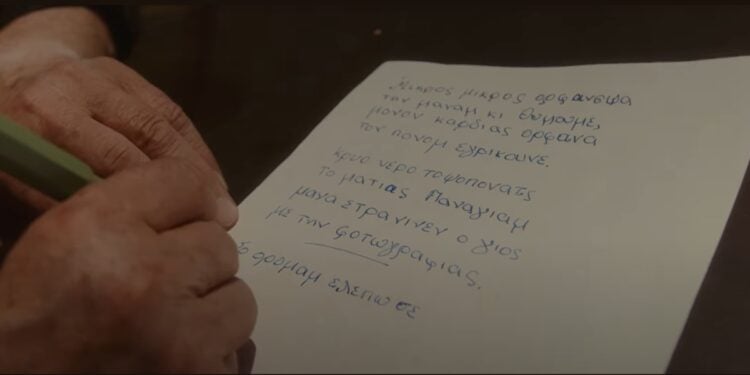 Μικρος μικρος ορφανεψα
την μαναμ κι θυμουμε,
μονον καρδιας ορφανα
τον πονομ εγρικουνε.
κρυο νερο
το ματιας Παναγιαμ
μανα ετρανινεν ο γιος
με την φωτωγραφιας.
το ορομαμ ελεπω σε